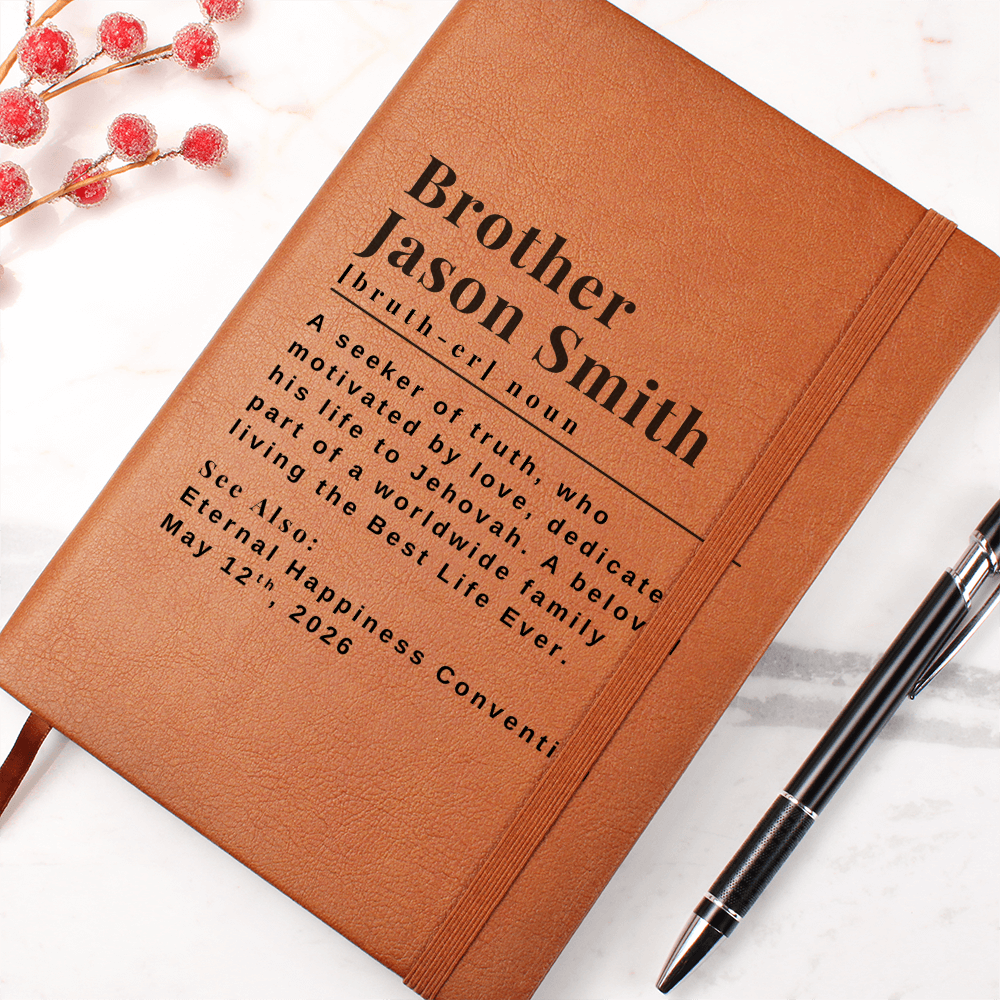 Brother
Jason Smith
[bruth-er] noun
A seeker of truth, who
motivated by love, dedicate
his life to Jehovah. A belov
part of a worldwide family
living the Best Life Ever.
See Also:
Eternal Happiness Conventi
May 12th, 2026